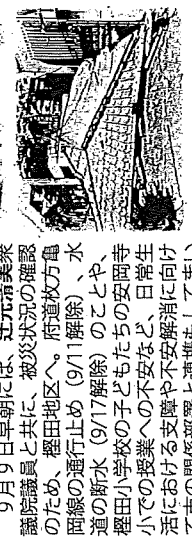 9月9日早朝には、辻元清美衆
議院議員と共に、被災状況の確認
のため、樫田地区へ。府道枚方亀
岡線の通行止め（9/11解除）、水
道の断水（9/17解除）のことや、
樫田小学校の子どもたちの安岡寺
小での授業への不安など、日常生
活における支障や不安解消に向け